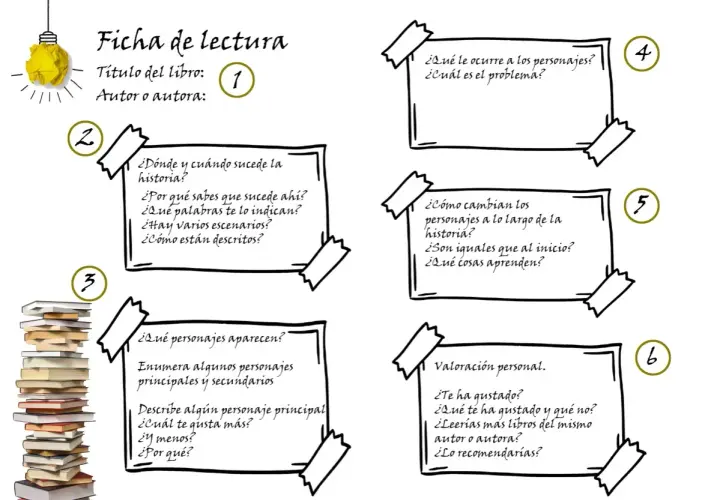 Ficha de lectura
Título del libro:
1
Autor o autora:
2
¿Dónde y cuándo sucede la
historia?
¿Por qué sabes que sucede ahí?
¿Qué palabras te lo indican?
¿Hay varios escenarios?
¿Cómo están descritos?
3
¿Qué personajes aparecen?
Enumera algunos personajes
principales y secundarios
Describe algún personaje principal
¿Cuál te gusta más?
¿Y menos?
¿Por qué?
4
¿Qué le ocurre a los personajes?
¿Cuál es el problema?
5
¿Cómo cambian los
personajes a lo largo de la
historia?
¿Son iguales que al inicio?
¿Qué cosas aprenden?
6
Valoración personal.
¿Te ha gustado?
¿Qué te ha gustado y qué no?
¿Leerías más libros del mismo
autor o autora?
¿Lo recomendarías?